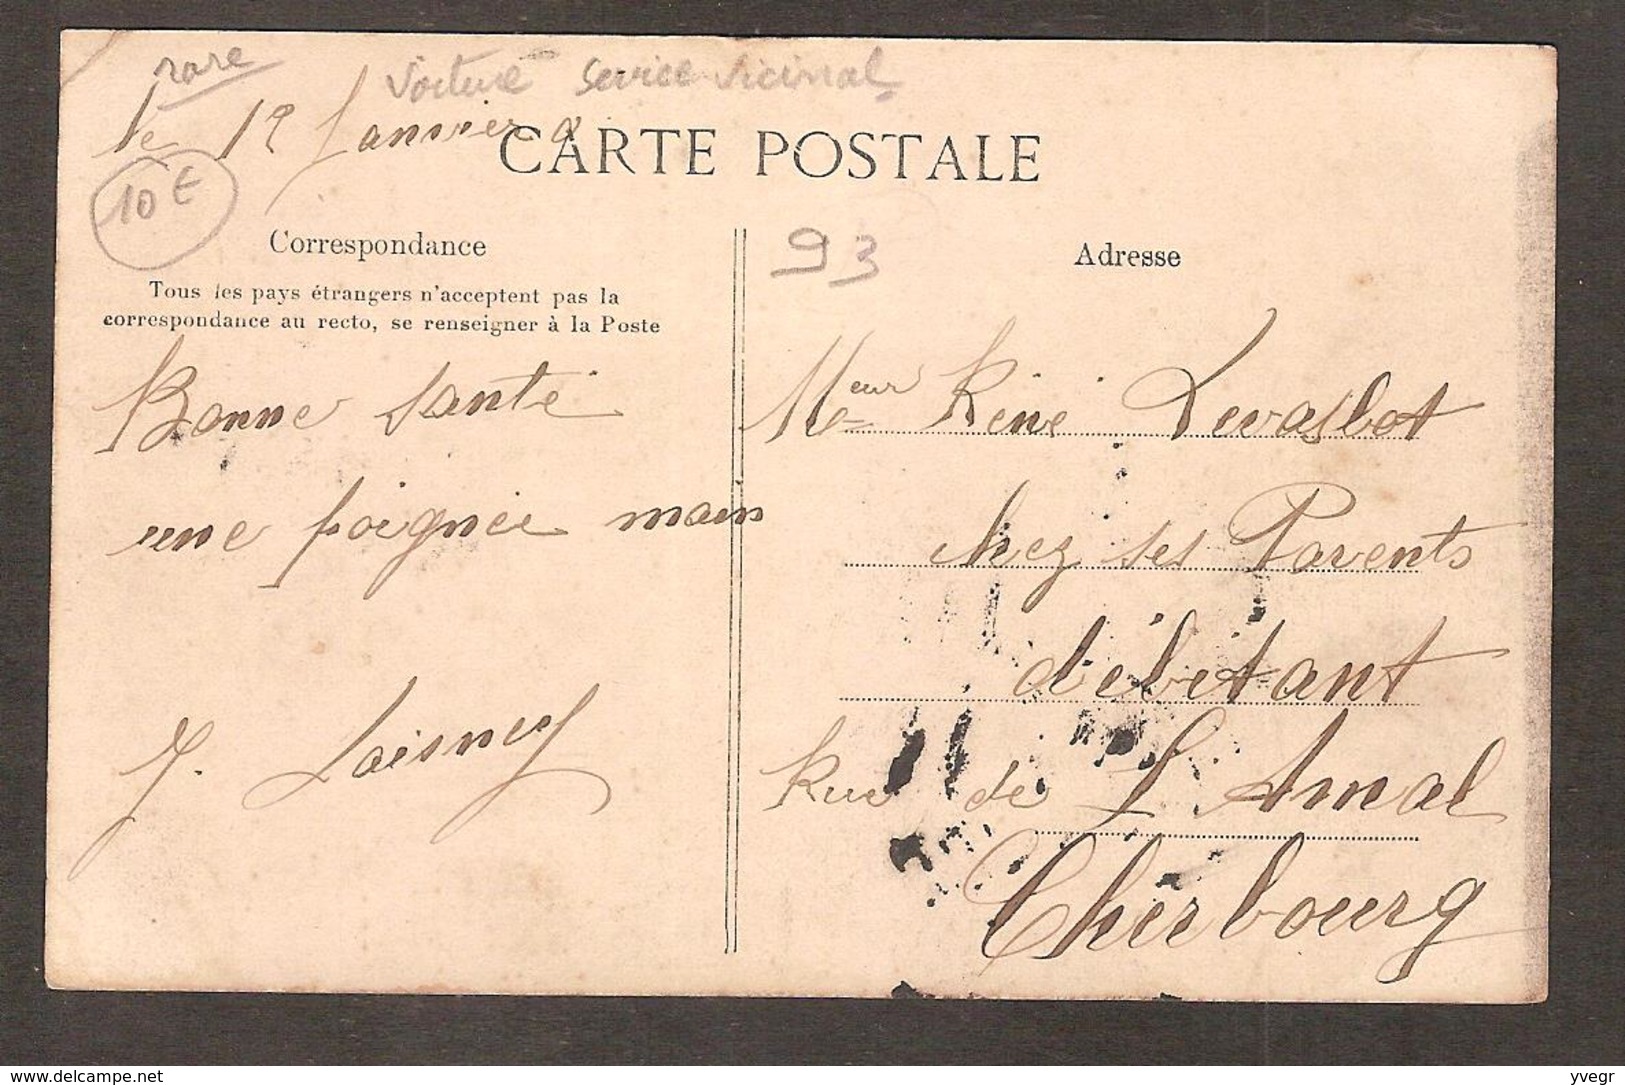 rare
Voiture Service vicinal
le 12 Janvier
CARTE POSTALE
10 €
Correspondance
93
Adresse
Tous les pays étrangers n'acceptent pas la
correspondance au recto, se renseigner à la Poste
Bonne Santé
une poignée main
J. Laisney
Meur Réné Levaslot
chez ses Parents
débitant
Rue de L Amal
Cherbourg
www.delcampe.net
yvegr